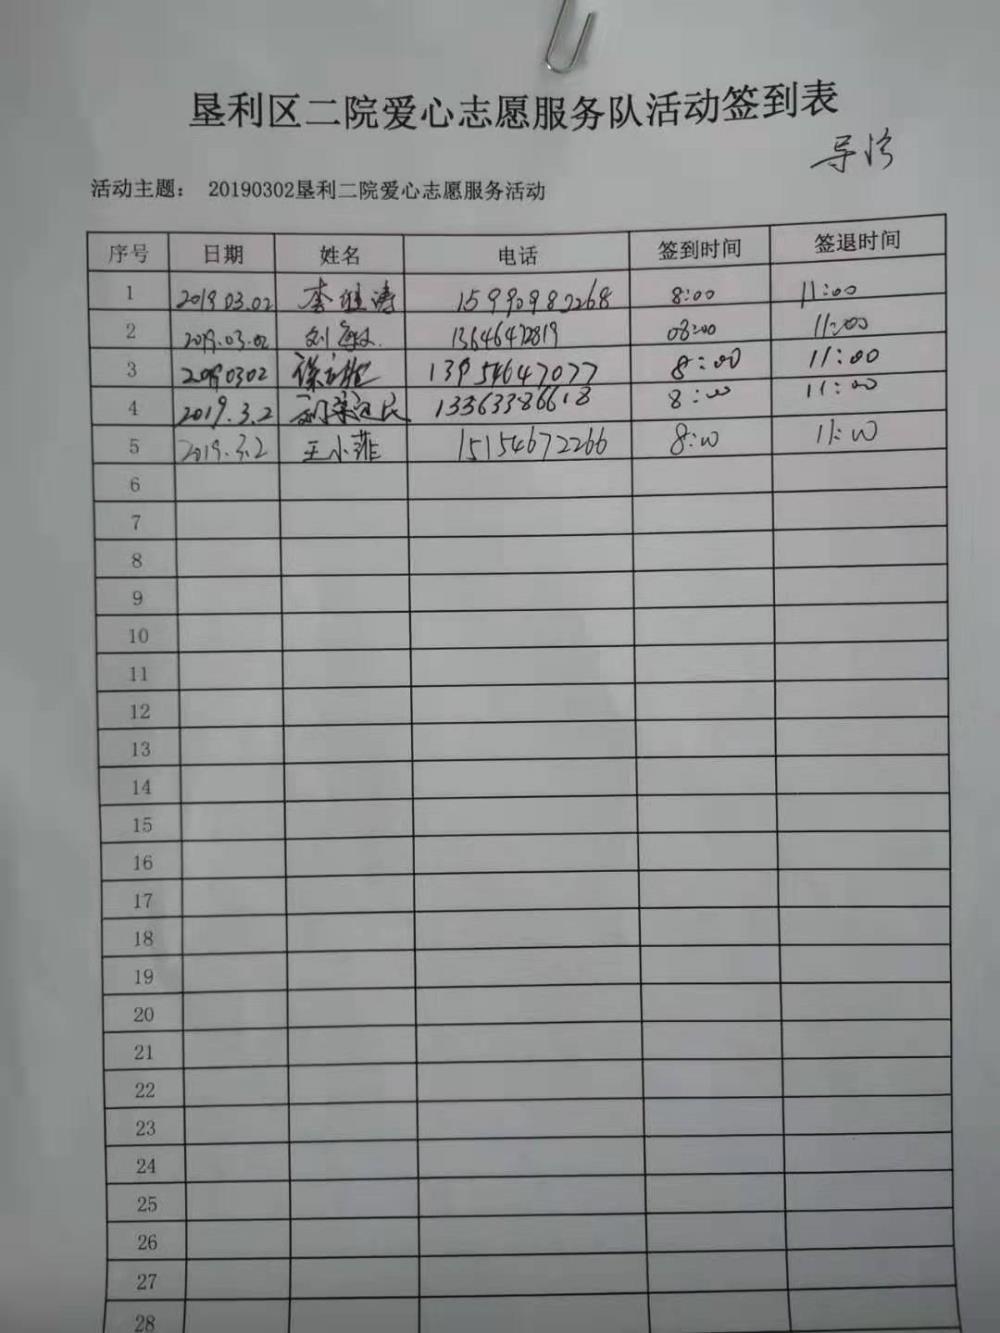 垦利区二院爱心志愿服务队活动签到表
导诊
活动主题： 20190302垦利二院爱心志愿服务活动
序号 日期 姓名 电话 签到时间 签退时间
1 2019.03.02 李继涛 15990982268 8:00 11:00
2 2019.03.02 刘敏 13646472819 08:00 11:00
3 20190302 13954647077 8:00 11:00
4 2019.3.2 13363386618 8:00 11:00
5 2019.3.2 王小菲 15154672266 8:00 11:00
6
7
8
9
10
11
12
13
14
15
16
17
18
19
20
21
22
23
24
25
26
27
28